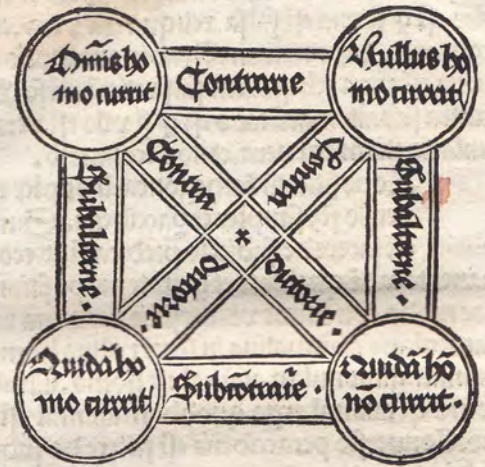 Om̄is ho
mo currit
Contrarie
Nullus ho
mo currit
Subalterne.
Contra
dictorie.
Contra
dictorie.
Subalterne.
Quidā ho
mo currit
Subcōtrarie.
Quidā hō
nō currit.